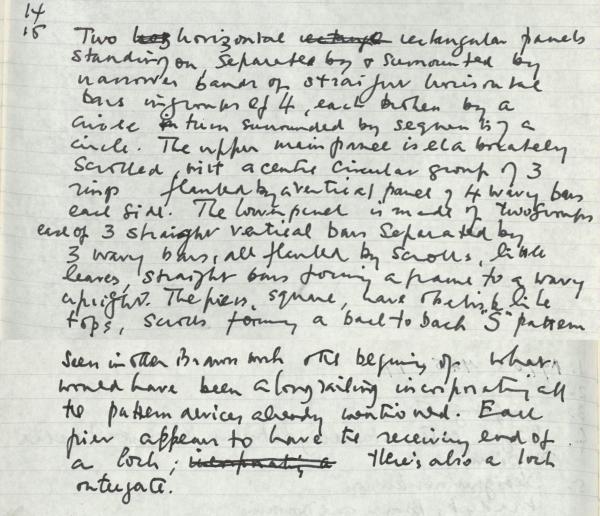 14
15 Two horizontal rectangular panels
standing on separated by & surrounded by
narrower bands of straight horizontal
bars in groups of 4, each broken by a
circle in turn surrounded by segments of a
circle. The upper main panel is elaborately
scrolled, with a centre circular group of 3
rings flanked by a vertical panel of 4 wavy bars
each side. The lower panel is made of two groups
each of 3 straight vertical bars separated by
3 wavy bars, all flanked by scrolls, little
leaves, straight bars forming a frame to a wavy
upright. The piers, square, have obelisk like
tops, scrolls forming a back to back "S" pattern
seen in other Brown work & the beginning of what
would have been a long railing incorporating all
the pattern devices already mentioned. Each
pier appears to have the receiving end of
a lock; There's also a lock
on the gate.